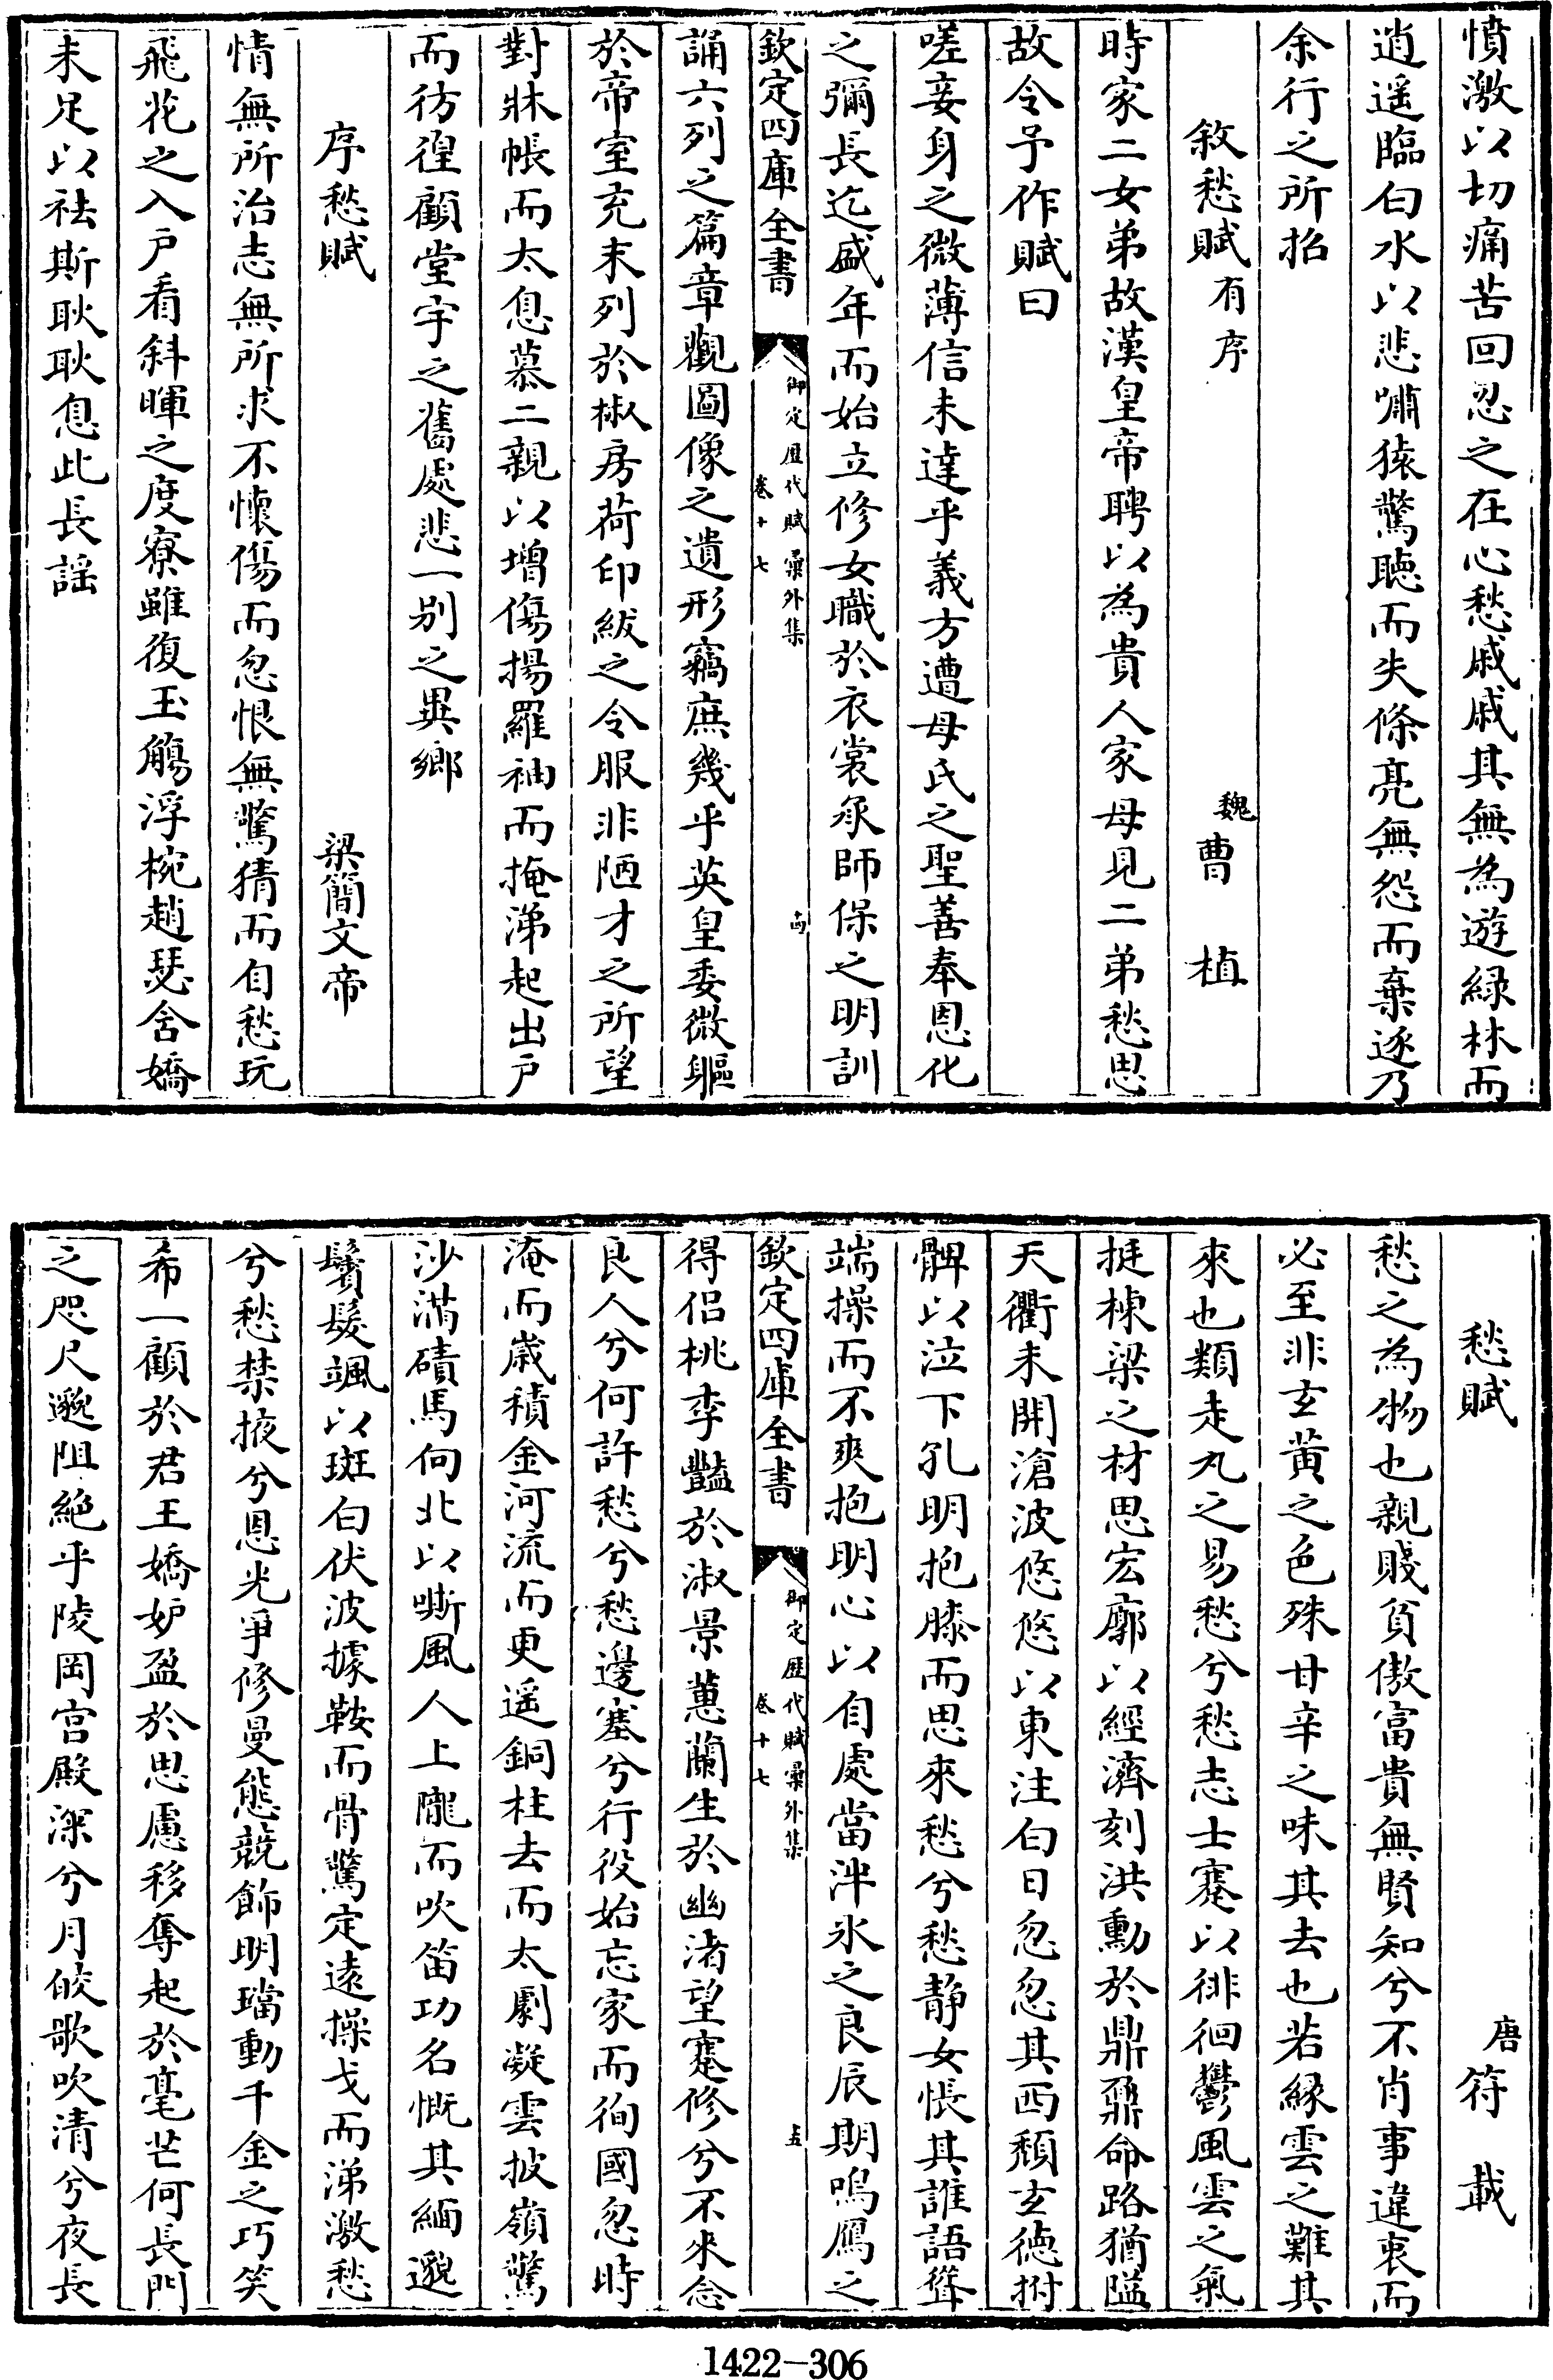 憤激以切痛苦回忍之在心愁戚戚其無為遊緑林而
逍遥臨白水以悲嘯猿驚聴而失條亮無怨而棄逐乃
余行之所招
敘愁賦有序
魏曹植
時家二女弟故漢皇帝聘以為貴人家母見二弟愁思
故令予作賦曰
嗟妾身之微薄信未達乎義方遭母氏之聖善奉恩化
之彌長迄盛年而始立修女職於衣裳承師保之明訓
欽定四庫全書
御定歴代賦彙外集
卷十七
十四
誦六列之篇章觀圖像之遺形竊庶幾乎英皇委微軀
於帝室充末列於椒房荷印紱之令服非陋才之所望
對牀帳而太息慕二親以增傷揚羅袖而掩涕起出户
而彷徨顧堂宇之舊處悲一别之異鄉
序愁賦
梁簡文帝
情無所治志無所求不懷傷而忽恨無驚猜而自愁玩
飛花之入户看斜暉之度寮雖復玉觴浮椀趙瑟含嬌
未足以祛斯耿耿息此長謡
愁賦
唐符載
愁之為物也親賤貧傲富貴無賢知兮不肖事違衷而
必至非玄黄之色殊甘辛之味其去也若緣雲之難其
來也類走丸之易愁兮愁志士蹇以徘徊鬱風雲之氣
挺棟梁之材思宏廓以經濟刻洪勳於鼎鼐命路猶隘
天衢未開滄波悠悠以東注白日忽忽其西頽玄德拊
髀以泣下孔明抱膝而思來愁兮愁静女悵其誰語聳
端操而不爽抱明心以自處當泮氷之良辰期鳴鴈之
欽定四庫全書
御定歴代賦彙外集
卷十七
十五
得侣桃李豔於淑景蕙蘭生於幽渚望蹇修兮不來念
良人兮何許愁兮愁邊塞兮行役始忘家而徇國忽時
淹而嵗積金河流而更遥銅柱去而太劇凝雲披嶺驚
沙滿磧馬向北以嘶風人上隴而吹笛功名慨其緬邈
鬢髮颯以斑白伏波據鞍而骨驚定遠操戈而涕激愁
兮愁禁掖兮恩光爭修曼態競飾明璫動千金之巧笑
希一顧於君王嬌妒盈於思慮移奪起於毫芒何長門
之咫尺邈阻絶乎陵岡宫殿深兮月皎歌吹清兮夜長
1422-306